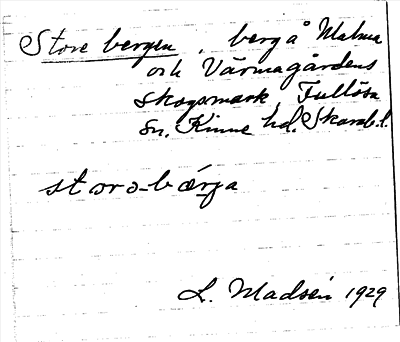 Store bergen, berg å Malma
och Värmagårdens
skogsmark, Fullösa
sn. Kinne hd. Skarab. l.
storə-bærja
L. Madsén 1929